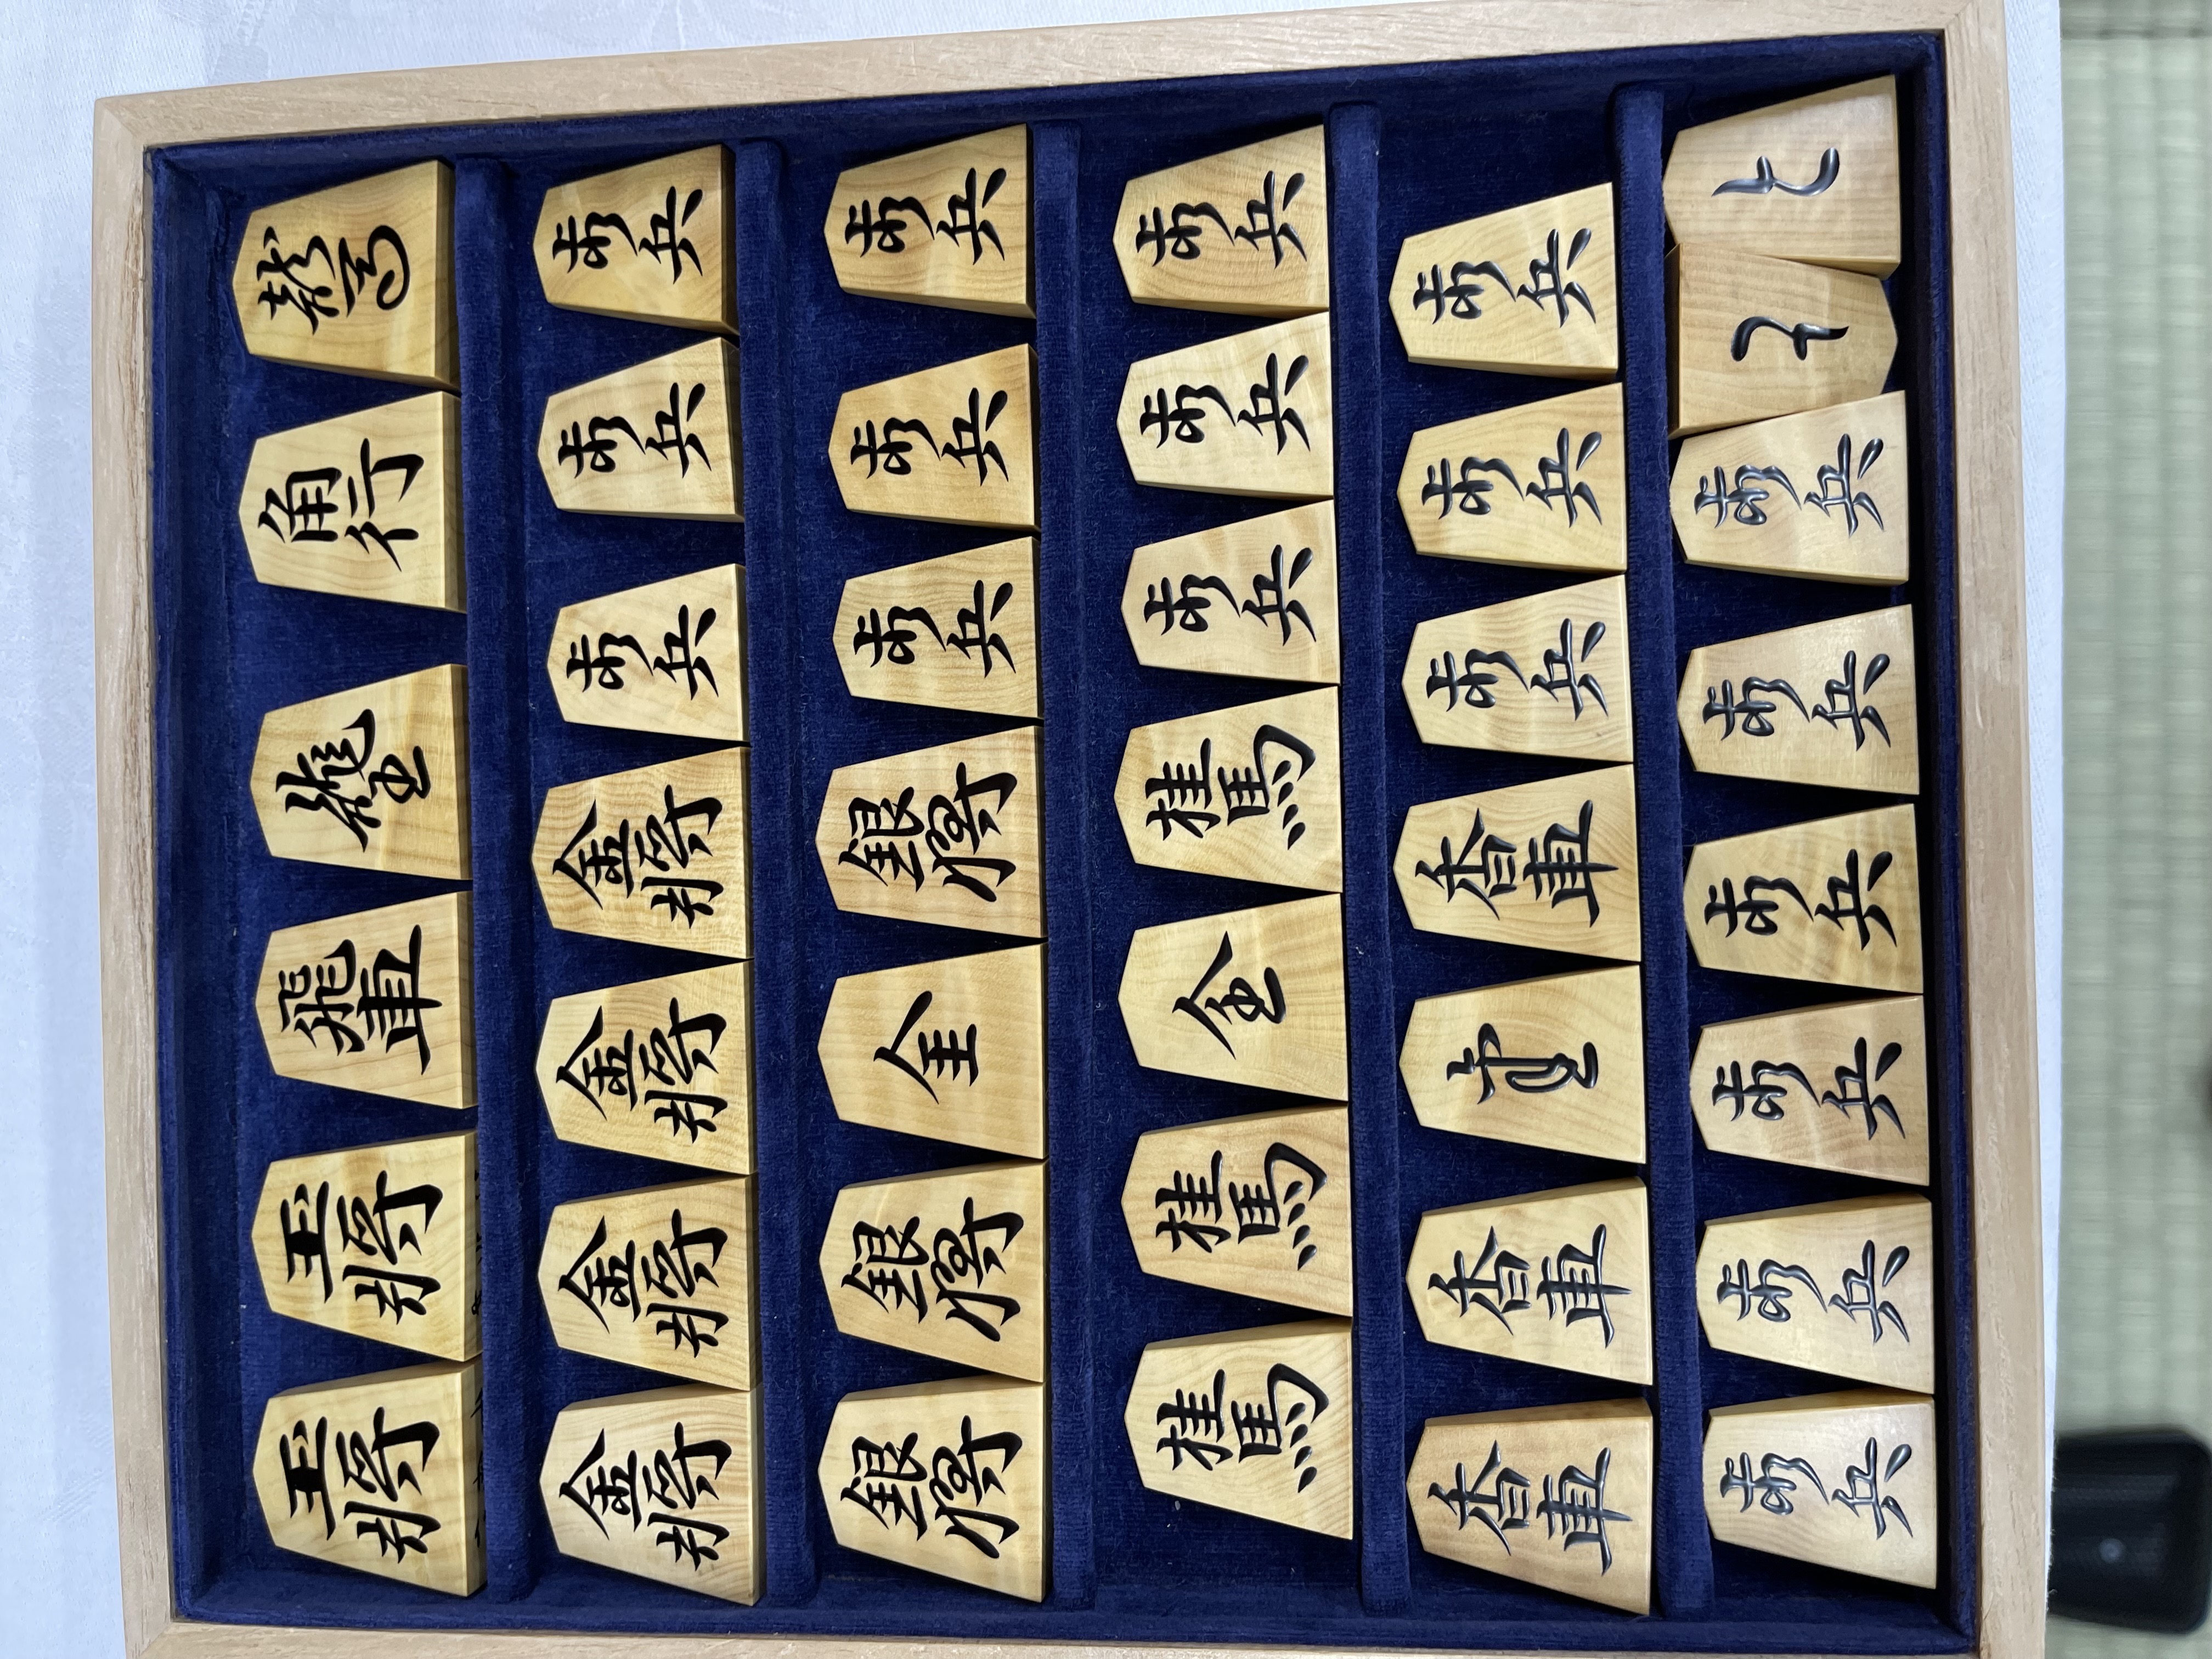 玉將 玉將 飛車 龍王 角行 龍馬
金將 金將 金將 金將 歩兵 歩兵 歩兵
銀將 銀將 全 銀將 歩兵 歩兵 歩兵
桂馬 桂馬 金 桂馬 歩兵 歩兵 歩兵
香車 香車 杏 香車 歩兵 歩兵 歩兵
歩兵 歩兵 歩兵 歩兵 歩兵 歩兵 と と